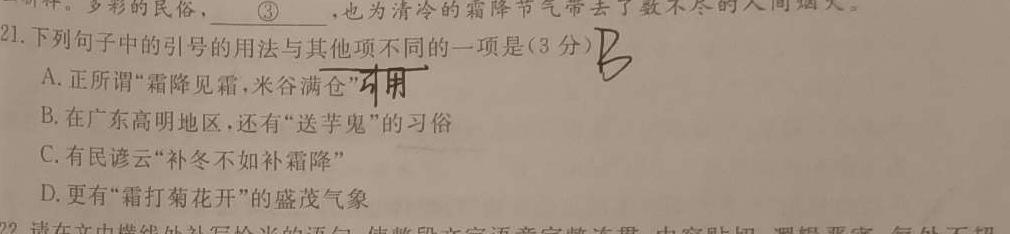 多彩的民俗,③,也为清冷的霜降节气带去了数不尽的人间烟火。
21.下列句子中的引号的用法与其他项不同的一项是(3 分) B
A.正所谓“霜降见霜,米谷满仓” 引用
B.在广东高明地区,还有“送芋鬼”的习俗
C.有民谚云“补冬不如补霜降”
D.更有“霜打菊花开”的盛茂气象
22.请在文中横线处补写恰当的语句,使整段文字语意完整连贯,内容贴切,逻辑严密,每处不超